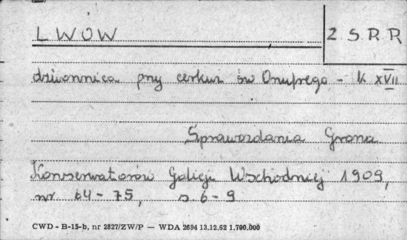 LWÓW
Z S R R
dzwonnica przy cerkwi św Onufrego - k XVII
Sprawozdania Grona
Konserwatorów Galicji Wschodniej 1909,
nr 64-75, s 6-9
CWD - B-15-b, nr 2827/ZW/P — WDA 2694 13.12.62 1.700.000